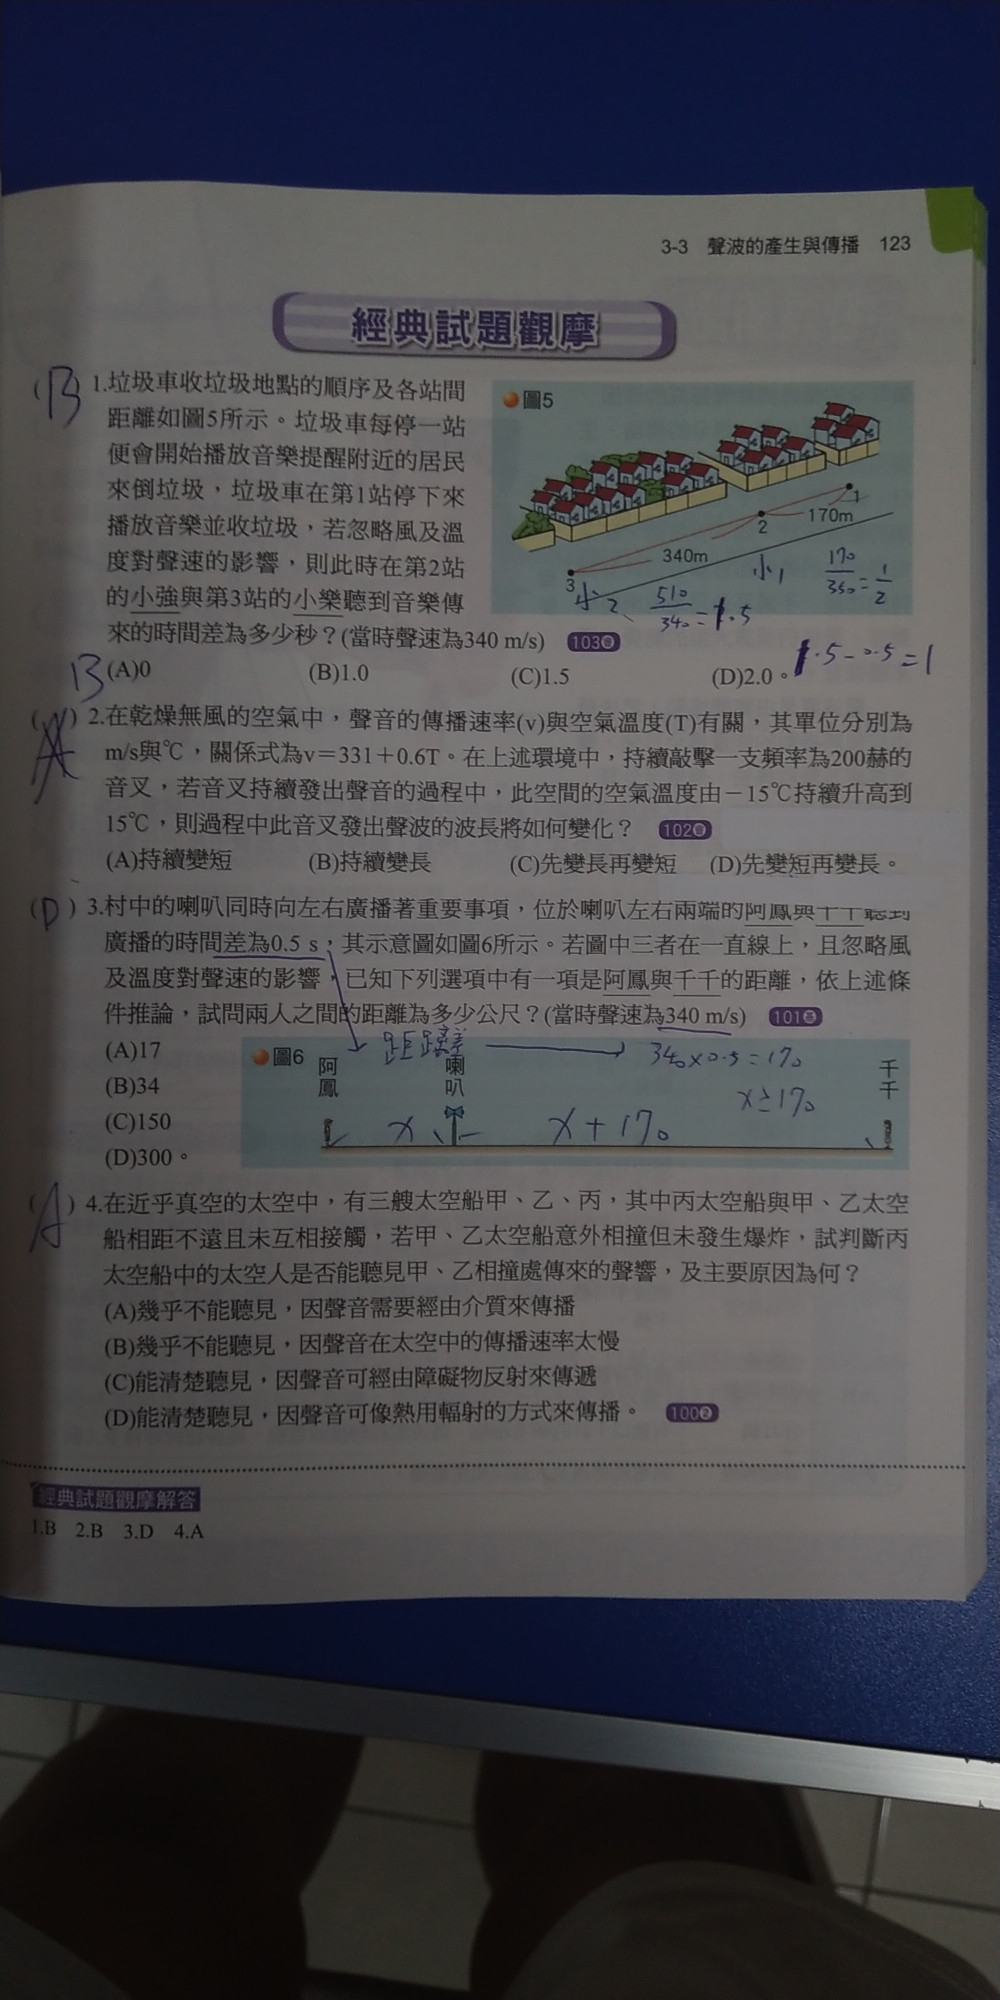 3-3 聲波的產生與傳播 123
經典試題觀摩
(B) 1.垃圾車收垃圾地點的順序及各站間
距離如圖5所示。垃圾車每停一站
便會開始播放音樂提醒附近的居民
來倒垃圾，垃圾車在第1站停下來
播放音樂並收垃圾，若忽略風及溫
度對聲速的影響，則此時在第2站
的小強與第3站的小樂聽到音樂傳
來的時間差為多少秒？(當時聲速為340 m/s) 103
(A)0 (B)1.0 (C)1.5 (D)2.0。
圖5
1
170m
2
340m
3
小1
170/350=1/2
小2
510/340=1.5
1.5-0.5=1
B
(A) 2.在乾燥無風的空氣中，聲音的傳播速率(v)與空氣溫度(T)有關，其單位分別為
m/s與℃，關係式為v＝331＋0.6T。在上述環境中，持續敲擊一支頻率為200赫的
音叉，若音叉持續發出聲音的過程中，此空間的空氣溫度由－15℃持續升高到
15℃，則過程中此音叉發出聲波的波長將如何變化？ 102
(A)持續變短 (B)持續變長 (C)先變長再變短 (D)先變短再變長。
(D) 3.村中的喇叭同時向左右廣播著重要事項，位於喇叭左右兩端的阿鳳與千千聽到
廣播的時間差為0.5 s，其示意圖如圖6所示。若圖中三者在一直線上，且忽略風
及溫度對聲速的影響，已知下列選項中有一項是阿鳳與千千的距離，依上述條
件推論，試問兩人之間的距離為多少公尺？(當時聲速為340 m/s) 101
(A)17
(B)34
(C)150
(D)300。
圖6
阿鳳
喇叭
千千
距離差
340×0.5=170
x≥170
x
x+170
(A) 4.在近乎真空的太空中，有三艘太空船甲、乙、丙，其中丙太空船與甲、乙太空
船相距不遠且未互相接觸，若甲、乙太空船意外相撞但未發生爆炸，試判斷丙
太空船中的太空人是否能聽見甲、乙相撞處傳來的聲響，及主要原因為何？
(A)幾乎不能聽見，因聲音需要經由介質來傳播
(B)幾乎不能聽見，因聲音在太空中的傳播速率太慢
(C)能清楚聽見，因聲音可經由障礙物反射來傳遞
(D)能清楚聽見，因聲音可像熱用輻射的方式來傳播。 100②
經典試題觀摩解答
1.B 2.B 3.D 4.A